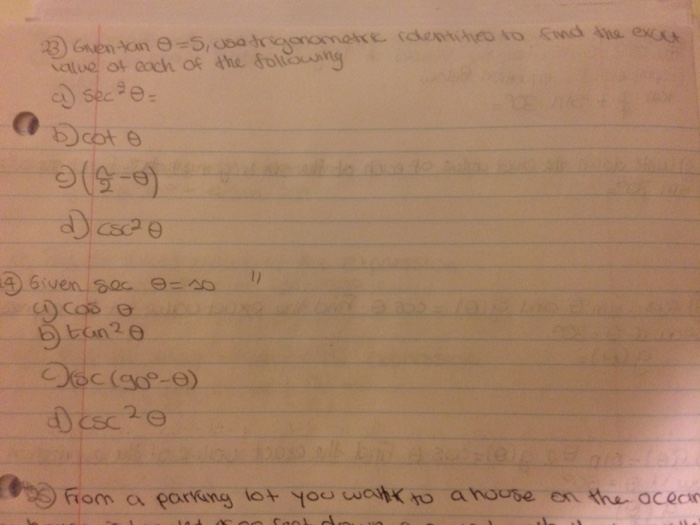 23) Given tan θ = 5, use trigonometric identities to find the exact
value of each of the following
a) sec² θ =
b) cot θ
c) (π/2 - θ)
d) csc² θ
4) Given sec θ = 10 "
a) cos θ
b) tan² θ
c) csc (90° - θ)
d) csc² θ
25) From a parking lot you walk to a house on the ocean